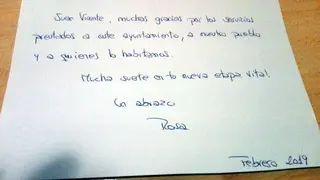 Juan Vicente, muchas gracias por los servicios
prestados a este ayuntamiento, a nuestro pueblo
y a quienes lo habitamos.
Mucha suerte en tu nueva etapa vital.
Un abrazo
Rosa
Febrero 2019